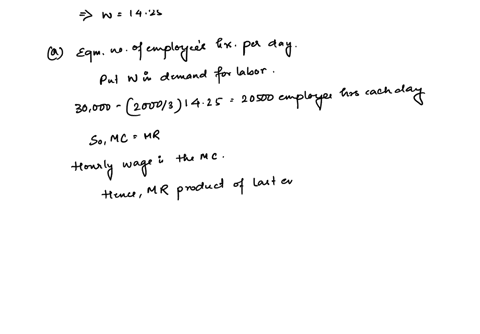 ⇒ W = 14.25
(a) Eqm. no. of employee's hr. per day.
Put W in demand for labor.
30,000 - (2000/3) 14.25 = 20500 employee hrs each day
So, MC = MR
Hourly wage is the MC.
Hence, MR product of last